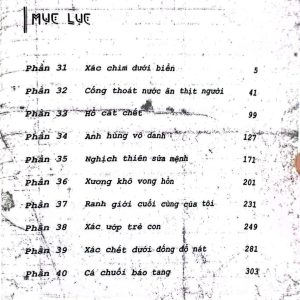 MỤC LỤC
Phần 31 Xác chìm dưới biển 5
Phần 32 Cống thoát nước ăn thịt người 41
Phần 33 Hồ cát chết 99
Phần 34 Anh hùng vô danh 127
Phần 35 Nghịch thiên sửa mệnh 171
Phần 36 Xương khô vong hồn 201
Phần 37 Ranh giới cuối cùng của tội 231
Phần 38 Xác ướp trẻ con 249
Phần 39 Xác chết dưới đống đổ nát 281
Phần 40 Cá chuối báo tang 303